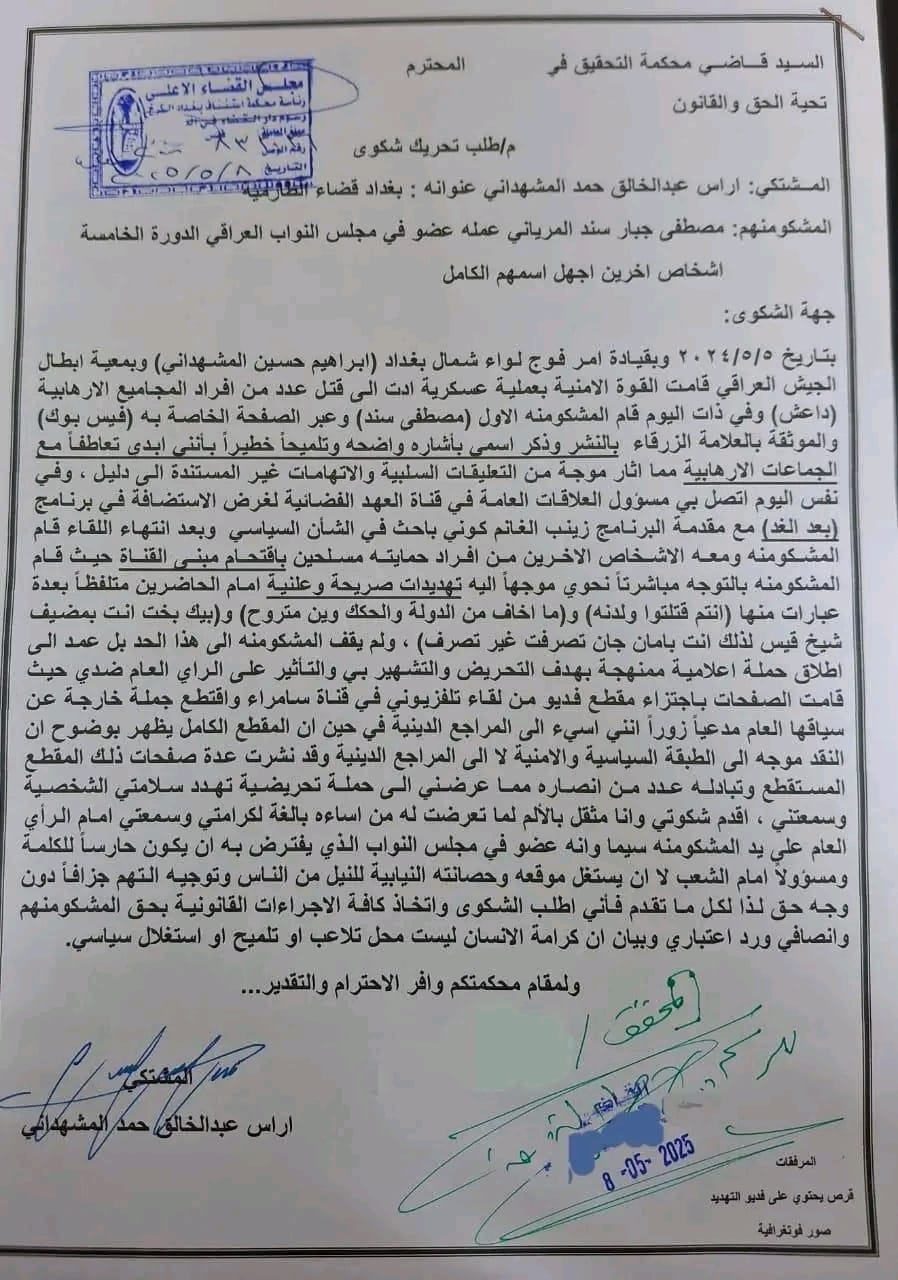 السيد قـاضي محكمة التحقيق في المحترم
تحية الحق والقانون
مجلس القضاء الاعلى
رئاسة محكمة استئناف بغداد الكرخ
التاريخ ٢٥/٥/٨
م/طلب تحريك شكوى
المـشتكي: اراس عبدالخالق حمد المشهداني عنوانه : بغداد قضاء الطارمية
المشكومنهم: مصطفى جبار سند المرياني عمله عضو في مجلس النواب العراقي الدورة الخامسة
اشخاص اخرين اجهل اسمهم الكامل
جهة الشكوى:
بتاريخ ٢٠٢٤/٥/٥ وبقيادة امر فوج لواء شمال بغداد (ابراهيم حسين المشهداني) وبمعية ابطال
الجيش العراقي قامت القوة الامنية بعملية عسكرية ادت الى قتل عدد من افراد المجاميع الارهابية
(داعش) وفي ذات اليوم قام المشكومنه الاول (مصطفى سند) وعبر الصفحة الخاصة به (فيس بوك)
والموثقة بالعلامة الزرقاء بالنشر وذكر اسمي بأشاره واضحه وتلميحاً خطيراً بأنني ابدي تعاطفاً مع
الجماعات الارهابية مما اثار موجة من التعليقات السلبية والاتهامات غير المستندة الى دليل ، وفي
نفس اليوم اتصل بي مسؤول العلاقات العامة في قناة العهد الفضائية لغرض الاستضافة في برنامج
(بعد الغد) مع مقدمة البرنامج زينب الغانم كوني باحث في الشأن السياسي وبعد انتهاء اللقاء قام
المشكومنه ومعه الاشخاص الاخرين من افراد حمايته مسلحين باقتحام مبنى القناة حيث قام
المشكومنه بالتوجه مباشرتاً نحوي موجهاً اليه تهديدات صريحة وعلنية امام الحاضرين متلفظاً بعدة
عبارات منها (انتم قتلتوا ولدنه) و(ما اخاف من الدولة والحكك وين متروح) و(بيك بخت انت بمضيف
شيخ قيس لذلك انت بامان جان تصرفت غير تصرف) ، ولم يقف المشكومنه الى هذا الحد بل عمد الى
اطلاق حملة اعلامية ممنهجة بهدف التحريض والتشهير بي والتأثير على الراي العام ضدي حيث
قامت الصفحات باجتزاء مقطع فديو من لقاء تلفزيوني في قناة سامراء واقتطع جملة خارجة عن
سياقها العام مدعياً زوراً انني اسيء الى المراجع الدينية في حين ان المقطع الكامل يظهر بوضوح ان
النقد موجه الى الطبقة السياسية والامنية لا الى المراجع الدينية وقد نشرت عدة صفحات ذلك المقطع
المستقطع وتبادله عدد من انصاره مما عرضني الى حملة تحريضية تهدد سلامتي الشخصية
وسمعتني ، اقدم شكوتي وانا مثقل بالألم لما تعرضت له من اساءه بالغة لكرامتي وسمعتي امام الرأي
العام على يد المشكومنه سيما وانه عضو في مجلس النواب الذي يفترض به ان يكون حارساً للكلمة
ومسؤولاً امام الشعب لا ان يستغل موقعه وحصانته النيابية للنيل من الناس وتوجيه التهم جزافاً دون
وجه حق لذا لكل ما تقدم فأني اطلب الشكوى واتخاذ كافة الاجراءات القانونية بحق المشكومنهم
وانصافي ورد اعتباري وبيان ان كرامة الانسان ليست محل تلاعب او تلميح او استغلال سياسي.
ولمقام محكمتكم وافر الاحترام والتقدير...
المحقق /
المشتكي
اراس عبدالخالق حمد المشهداني
8 -05- 2025
المرفقات
قرص يحتوي على فديو التهديد
صور فوتغرافية